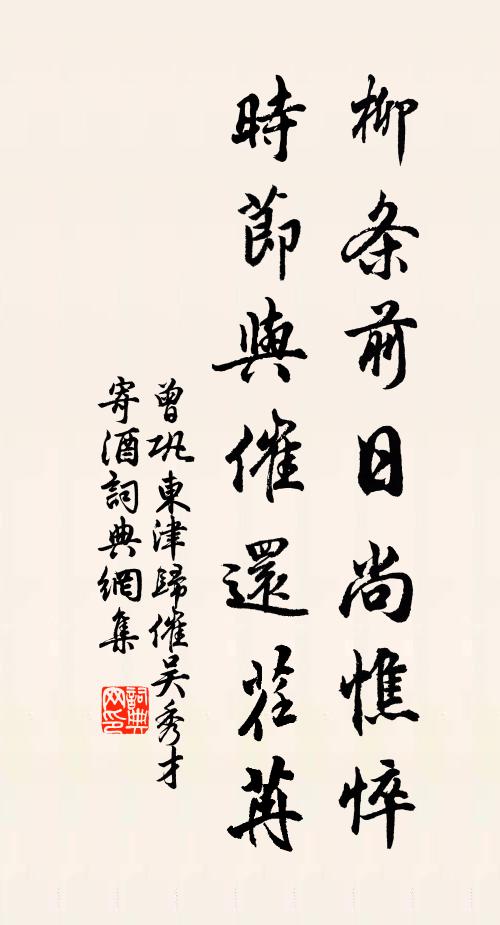 柳条前日尚憔悴
時節與催還荏苒
曾巩東津歸催吴秀才
寄酒詞典網集
詞典
网印